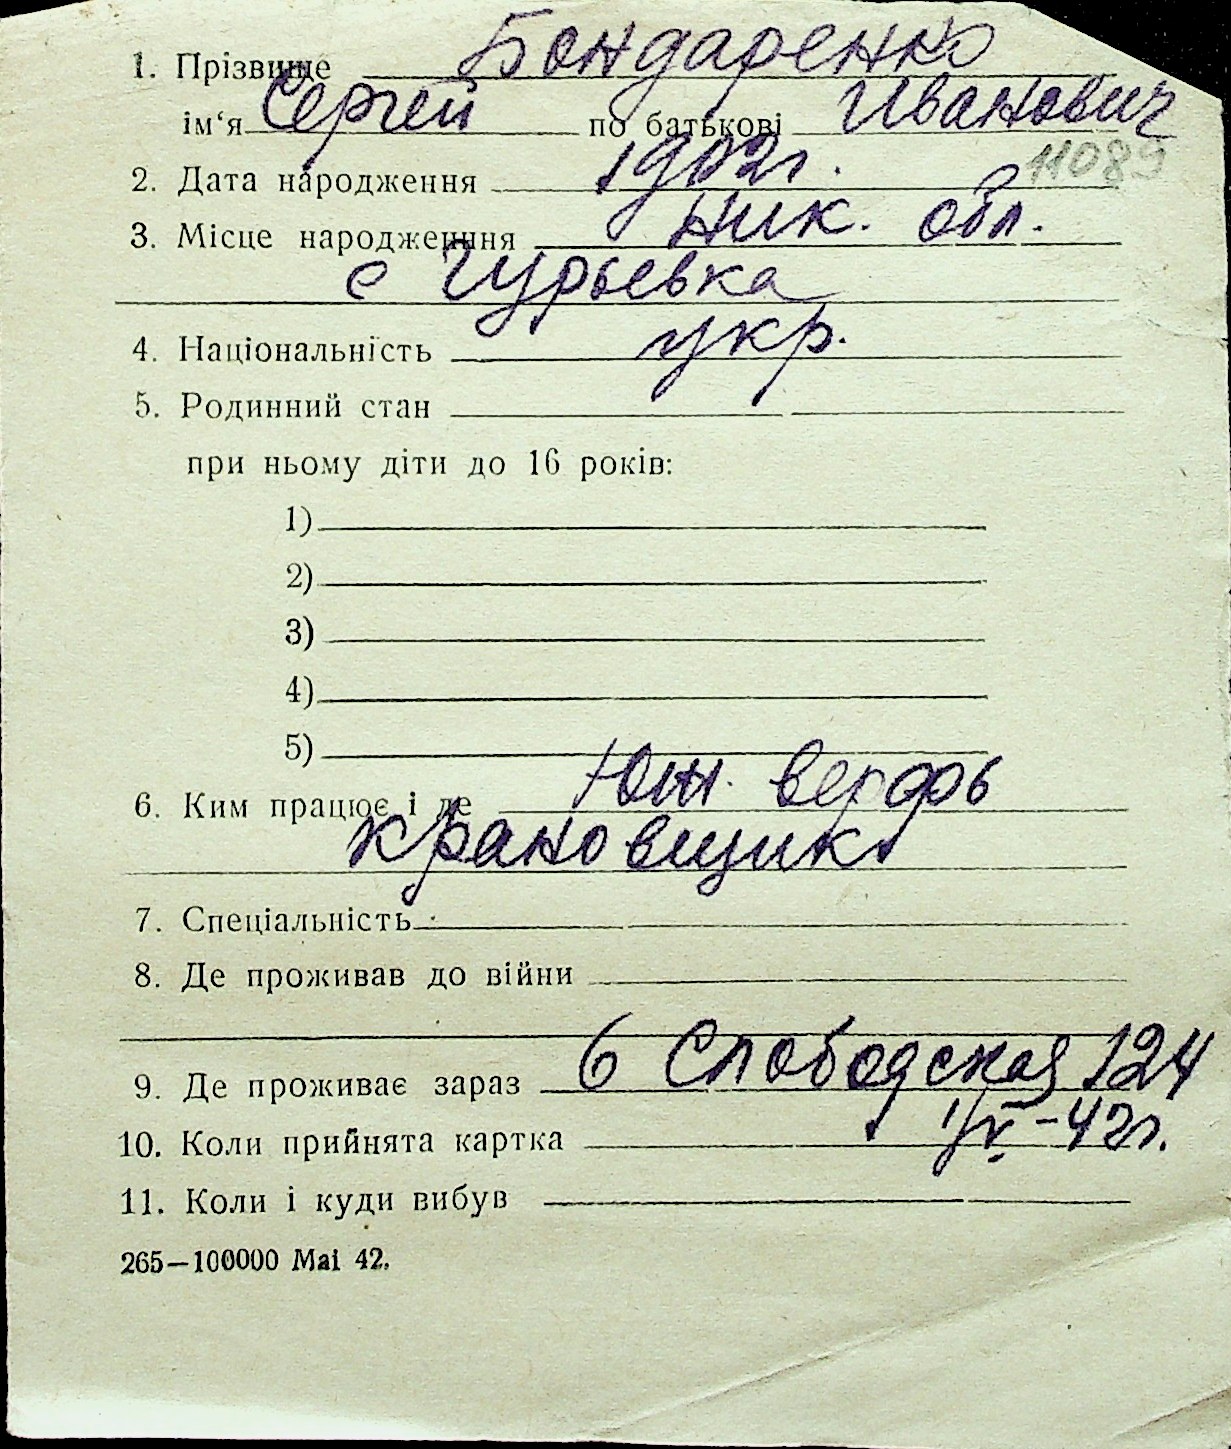 1. Прізвище Бондаренко
ім‘я Сергей по батькові Иванович
11089
2. Дата народження 1902г.
3. Місце народженння Ник. обл.
с Гурьевка
4. Національність укр.
5. Родинний стан
при ньому діти до 16 років:
1)
2)
3)
4)
5)
6. Ким працює і де Юж. верфь
крановщик
7. Спеціальність
8. Де проживав до війни
9. Де проживає зараз 6 Слободская 124
10. Коли прийнята картка -42г.
11. Коли і куди вибув
265—100000 Mai 42.